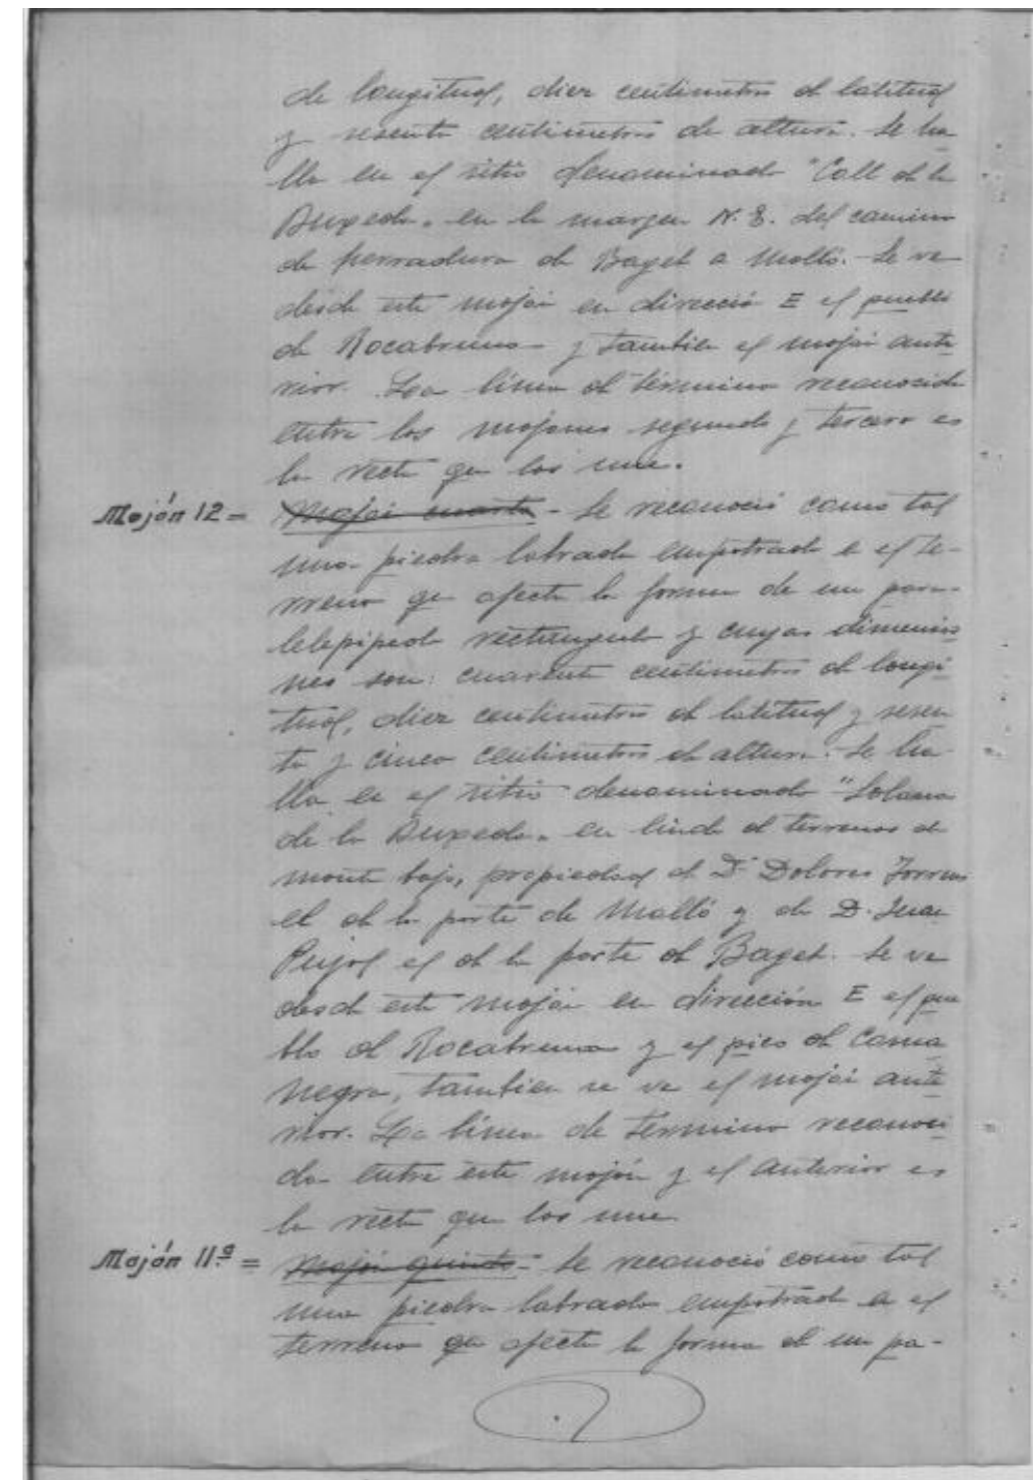 de longitud, diez centimetros de latitud
y sesenta centimetros de altura. Se ha-
lla en el sitio denominado "Coll de la
Buxeda„ en la margen N. E. del camino
de herradura de Baget a Molló. Se ve
desde este mojón en direcció E el pueblo
de Rocabruna y tambien el mojón ante
rior. La línea de término reconocida
entre los mojones segundo y tercero es
la recta que los une.
Mojón 12 = Mojón cuarto - Se reconoció como tal
una piedra labrada empotrada en el te-
rreno que afecta la forma de un para-
lelepipedo rectangulo y cuyas dimensio
nes son: cuarenta centimetros de longi
tud, diez centimetros de latitud y sesen
ta y cinco centimetros de altura. Se ha-
lla en el sitio denominado "Solana
de la Buxeda„ en linde de terrenos de
monte bajo, propiedad de Dª Dolores
el de la parte de Molló y de D. Juan
Pujol el de la parte de Baget. Se ve
desde este mojón en dirección E el pue
blo de Rocabruna y el pico de Coma
negra, tambien se ve el mojón ante
rior. La línea de termino reconoci
da entre este mojón y el anterior es
la recta que los une
Mojón 11.º = Mojón quinto - Se reconoció como tal
una piedra labrada empotrada en el
terreno que afecta la forma de un pa-